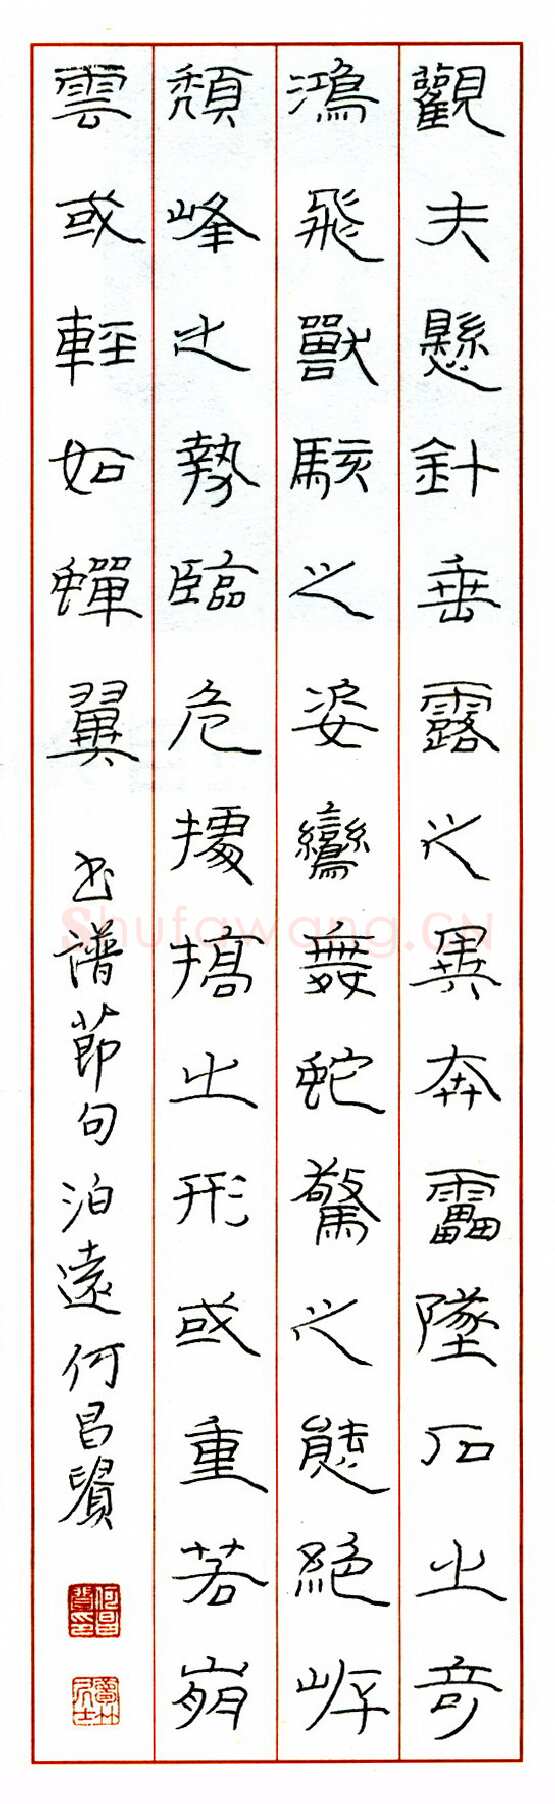 觀夫懸針垂露之異奔靁墜石之奇
鴻飛獸駭之姿鸞舞蛇驚之態絕岸
頽峰之勢臨危據槁之形或重若崩
雲或輕如蟬翼 书譜節句泊遠何昌賢
何昌賢印
Shufawang.CN